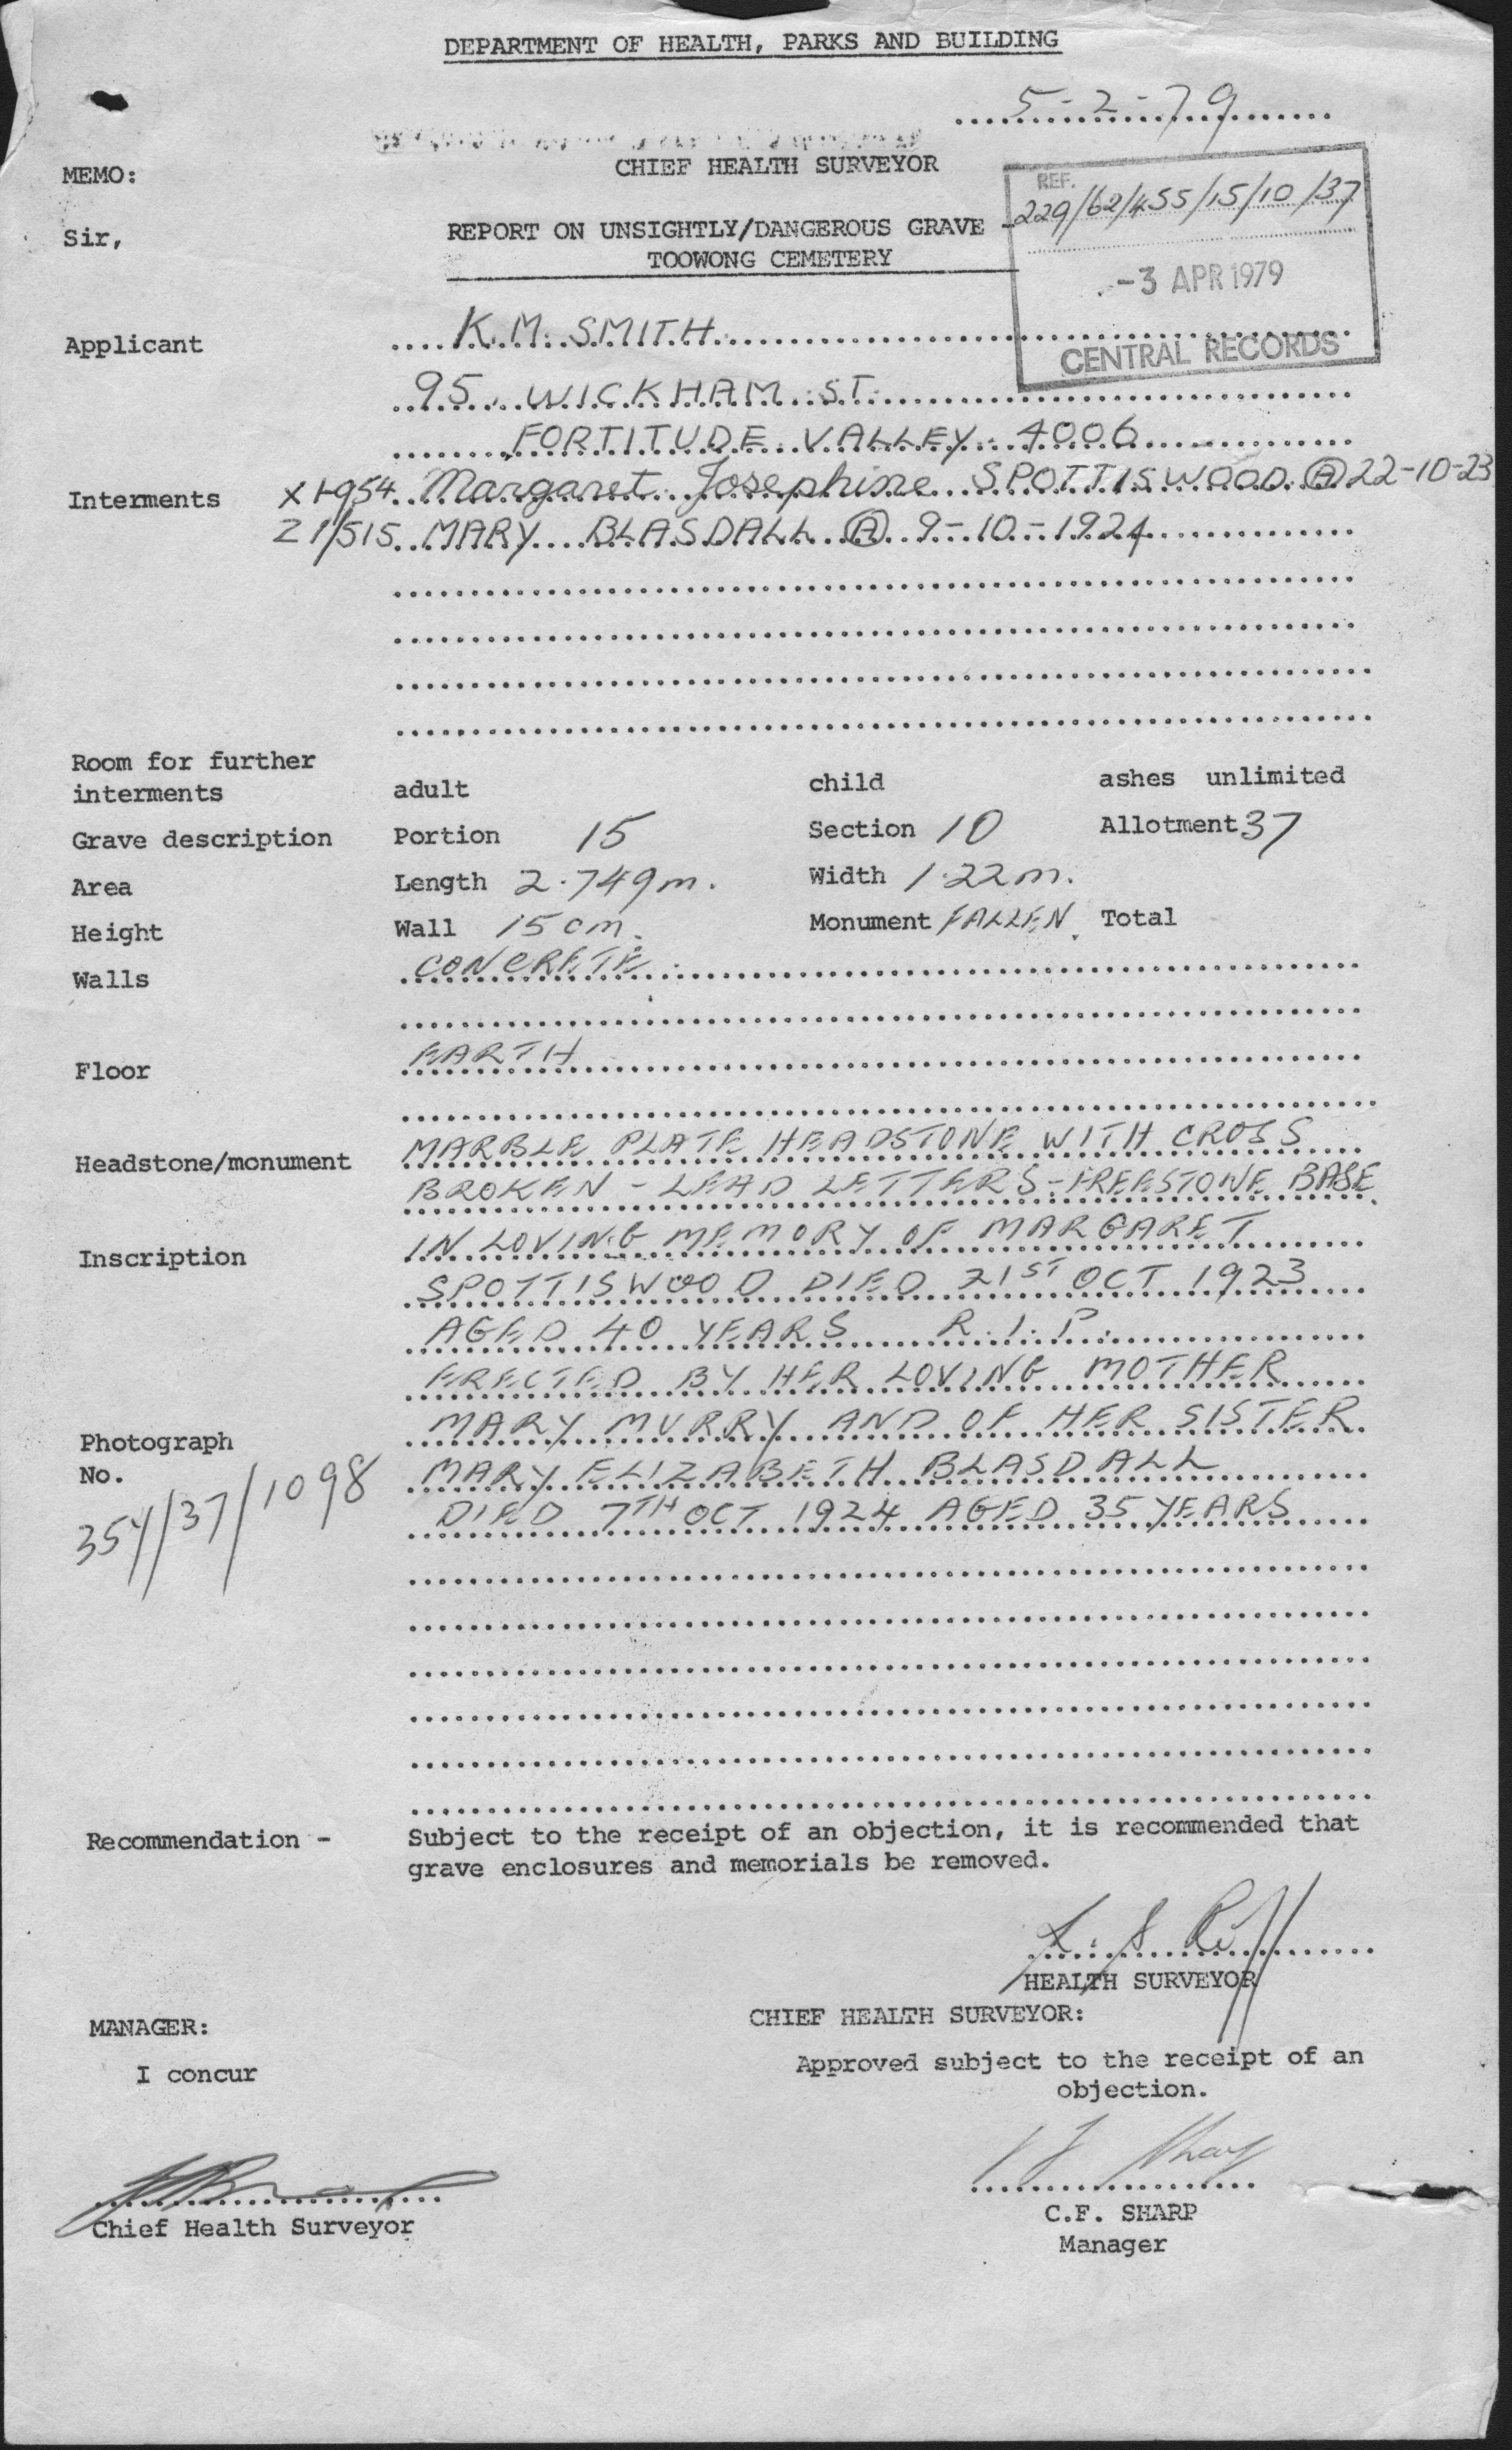 DEPARTMENT OF HEALTH, PARKS AND BUILDING
5-2-79
MEMO:
CHIEF HEALTH SURVEYOR
REF.
229/62/455/15/10/37
Sir,
REPORT ON UNSIGHTLY/DANGEROUS GRAVE -
TOOWONG CEMETERY
-3 APR 1979
CENTRAL RECORDS
Applicant K.M. SMITH
95 WICKHAM ST.
FORTITUDE VALLEY 4006
Interments Margaret Josephine SPOTTISWOOD Ⓐ 22-10-23
Z 1/515 MARY BLASDALL Ⓐ 9-10-1924
Room for further
interments adult child ashes unlimited
Grave description Portion 15 Section 10 Allotment 37
Area Length 2.749m. Width 1.22m.
Height Wall 15cm. Monument FALLEN. Total
Walls CONCRETE
Floor EARTH
Headstone/monument MARBLE PLATE HEADSTONE WITH CROSS
BROKEN - LEAD LETTERS - FREESTONE BASE
Inscription IN LOVING MEMORY OF MARGARET
SPOTTISWOOD DIED 21ST OCT 1923
AGED 40 YEARS R.I.P.
ERECTED BY HER LOVING MOTHER
MARY MURRY AND OF HER SISTER
MARY ELIZABETH BLASDALL
DIED 7TH OCT 1924 AGED 35 YEARS
Photograph
No.
354/37/1098
Recommendation - Subject to the receipt of an objection, it is recommended that
grave enclosures and memorials be removed.
HEALTH SURVEYOR
MANAGER:
I concur
Chief Health Surveyor
CHIEF HEALTH SURVEYOR:
Approved subject to the receipt of an
objection.
C.F. SHARP
Manager